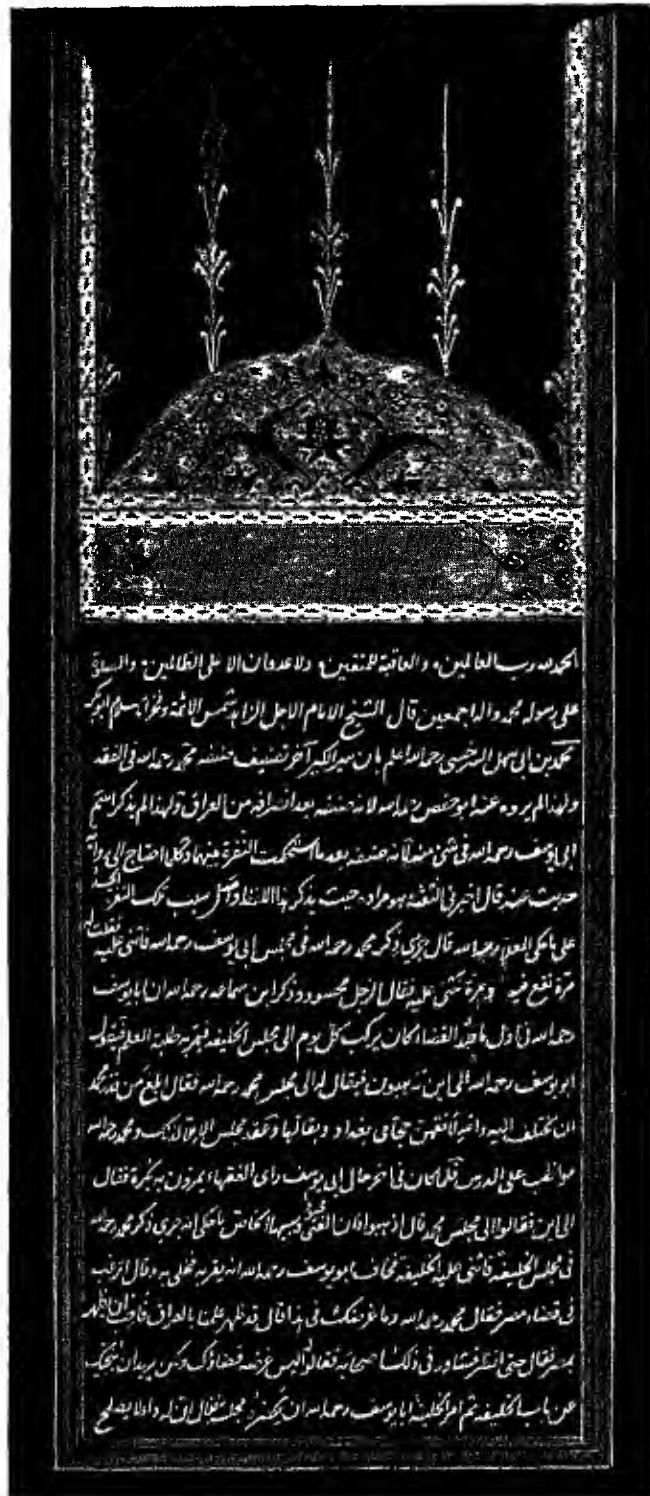 الحمد لله رب العالمين والعاقبة للمتقين ولا عدوان الا على الظالمين والصلوة
على رسوله محمد واله اجمعين قال الشيخ الامام الاجل الزاهد شمس الائمة وفخر الاسلام ابوبكر
محمد بن ابى سهل السرخسى رحمه الله اعلم بان سير الكبير آخر تصنيف صنفه محمد رحمه الله فى الفقه
ولهذا لم يروه عنه ابو حفص رحمه الله لانه صنفه بعد انصرافه من العراق ولهذا لم يذكر اسم
ابى يوسف رحمه الله فى شئ منه لانه صنفه بعد ما استحكمت النفرة بينهما وكلما احتاج الى رواية
حديث عنه قال اخبرنى الثقة وهو مراده حيث يذكر هذا اللفظ واصل سبب تلك النفرة
على ما حكى المعلى رحمه الله قال جرى ذكر محمد رحمه الله فى مجلس ابى يوسف رحمه الله فاثنى عليه فقلت له
مرة تقع فيه ومرة تثنى عليه فقال الرجل محسود وذكر ابن سماعه رحمه الله ان ابا يوسف
رحمه الله فى اول ما قلد القضا كان يركب كل يوم الى مجلس الخليفه فيمر به طلبة العلم فيقول
ابو يوسف رحمه الله الى اين تذهبون فيقال له الى مجلس محمد رحمه الله فقال ابلغ من قدر محمد
ان يختلف اليه والله لافقهن حجامى بغداد وبقاليها وعقد مجلس الاملا لذلك ومحمد رحمه الله
مواظب على الدرس فلما كان فى اخر حال ابى يوسف راى الفقهاء يمرون به بكرة فقال
الى اين فقالوا الى مجلس محمد قال اذهبوا فان الفتى محسود وسببها الخاص ما حكى انه جرى ذكر محمد رحمه الله
فى مجلس الخليفة فاثنى عليه الخليفة فخاف ابو يوسف رحمه الله انه يقربه فخلى به وقال اترغب
فى قضاء مصر فقال محمد رحمه الله وما غرضك فى هذا قال قد ظهر علمنا بالعراق فاحب ان يظهر
بمصر فقال حتى انظر فشاور فى ذلك اصحابه فقالوا ليس غرضه قضاؤك ولكن يريدان ينحيك
عن باب الخليفه ثم امر الخليفة ابا يوسف رحمه الله ان يحضره مجلسه فقال ان به داء لا يصلح